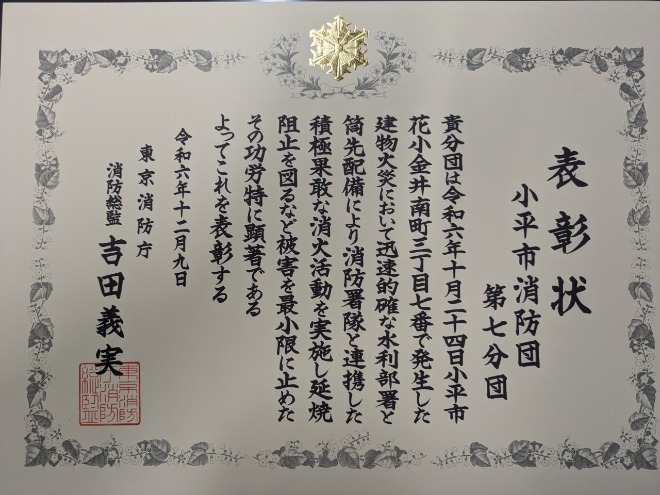 表彰状
小平市消防団
第七分団
貴分団は令和六年十月二十四日小平市
花小金井南町三丁目七番で発生した
建物火災において迅速的確な水利部署と
筒先配備により消防署隊と連携した
積極果敢な消火活動を実施し延焼
阻止を図るなど被害を最小限に止めた
その功労特に顕著である
よってこれを表彰する
令和六年十二月九日
東京消防庁
消防総監 吉田義実